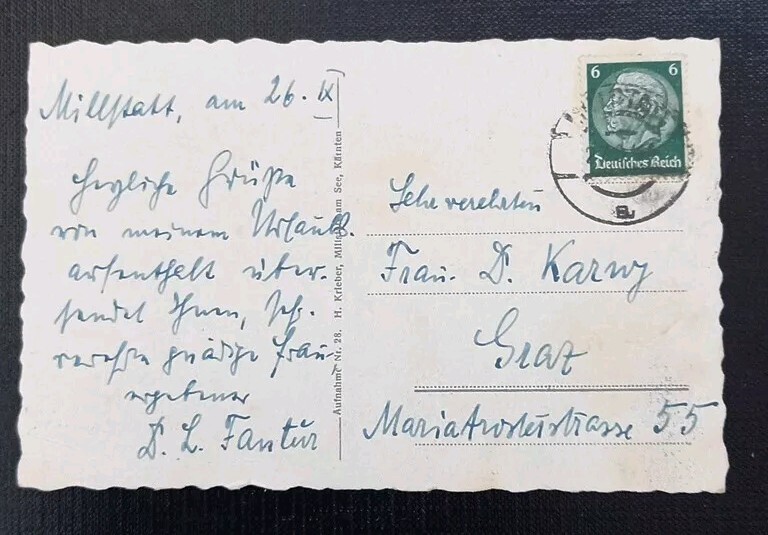 Millstatt, am 26. IX
Herzliche Grüße
von meinem Urlaubs-
aufenthalt über-
sendet Ihnen, sehr
verehrte gnädige Frau
ergebener
D. L. Fantur
Aufnahme Nr. 28. H. Krieber, Millstatt am See, Kärnten
6 6
Deutsches Reich
Frau D. Karny
Graz
Mariatrosterstrasse 55